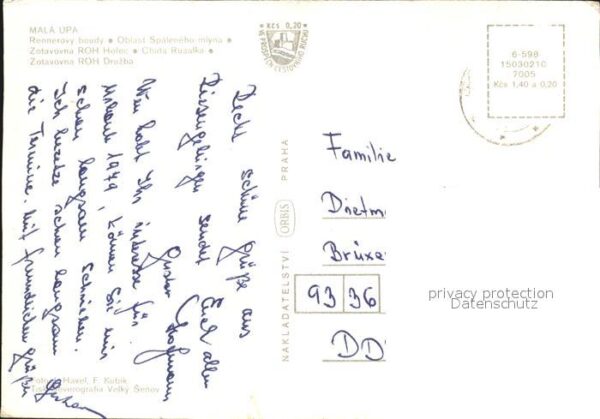 MALÁ ÚPA
Rennerovy boudy • Oblast Spáleného mlýna •
Zotavovna ROH Hořec • Chata Rusalka •
Zotavovna ROH Družba
Kčs 0,20
VE PROSPĚCH CESTOVNÍHO RUCHU
6-598
15030210
7005
Kčs 1,40 a 0,20
Recht schöne Grüße aus
sendet Euch allen
Gustav Hofmann
Wen habt Ihr interesse für
Urlaub 1979, können Sie mir
schon langsam schreiben.
Ich besetze schon langsam
die Termine. Mit freundlichen Grüßen
Gustav
NAKLADATELSTVÍ ORBIS PRAHA
Familie
Dietm
Brüxe
93 36
DD
privacy protection
Datenschutz
Foto J. Havel, F. Kubík
Tisk Severografia Velký Šenov